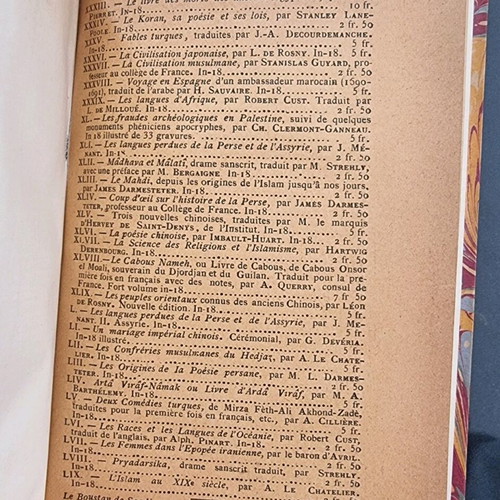 XXXIII. — Le livre des morts des
PIERRET. In-18. 10 fr.
XXXIV. — Le Koran, sa poésie et ses lois, par STANLEY LANE-
POOLE. In-18. 2 fr. 50
XXXV. — Fables turques, traduites par J.-A. DECOURDEMANCHE.
In-18. 5 fr.
XXXVI. — La Civilisation japonaise, par L. DE ROSNY. In-18. 5 fr.
XXXVII. — La Civilisation musulmane, par STANISLAS GUYARD, pro-
fesseur au collège de France. In-18. 2 fr. 50
XXXVIII. — Voyage en Espagne d'un ambassadeur marocain (1690-
1691), traduit de l'arabe par H. SAUVAIRE. In-18. 5 fr.
XXXIX. — Les langues d'Afrique, par ROBERT CUST. Traduit par
L. DE MILLOUÉ. In-18. 2 fr. 50
XL. — Les fraudes archéologiques en Palestine, suivi de quelques
monuments phéniciens apocryphes, par CH. CLERMONT-GANNEAU.
In-18 illustré de 33 gravures. 5 fr.
XLI. — Les langues perdues de la Perse et de l'Assyrie, par J. MÉ-
NANT. In-18. 5 fr.
XLII. — Mâdhava et Mâlatî, drame sanscrit, traduit par M. STREHLY,
avec une préface par M. BERGAIGNE. In-18. 2 fr. 50
XLIII. — Le Mahdi, depuis les origines de l'Islam jusqu'à nos jours,
par JAMES DARMESTETER. In-18. 2 fr. 50
XLIV. — Coup d'œil sur l'histoire de la Perse, par JAMES DARMES-
TETER, professeur au Collège de France. In-18. 2 fr. 50
XLV. — Trois nouvelles chinoises, traduites par M. le marquis
D'HERVEY DE SAINT-DENYS, de l'Institut. In-18. 5 fr.
XLVI. — La poésie chinoise, par IMBAULT-HUART. In-18. 2 fr. 50
XLVII. — La Science des Religions et l'Islamisme, par HARTWIG
DERENBOURG. In-18. 2 fr. 50
XLVIII. — Le Cabous Nameh, ou Livre de Cabous, de Cabous Onsor
el Moali, souverain du Djordjan et du Guilan. Traduit pour la pre-
mière fois en français avec des notes, par A. QUERRY, consul de
France. Fort volume in-18. 7 fr. 50
XLIX. — Les peuples orientaux connus des anciens Chinois, par LÉON
DE ROSNY. Nouvelle édition. In-18. 5 fr.
L. — Les langues perdues de la Perse et de l'Assyrie, par J. MÉ-
NANT. II. Assyrie. In-18. 5 fr.
LI. — Un mariage impérial chinois. Cérémonial, par G. DEVÉRIA.
In-18 illustré. 5 fr.
LII. — Les Confréries musulmanes du Hedjaz, par A. LE CHATE-
LIER. In-18. 5 fr.
LIII. — Les Origines de la Poésie persane, par M. L. DARMES-
TETER. In-18. 2 fr. 50
LIV. Artâ Vîrâf-Nâmak ou Livre d'Ardâ Vîrâf, par M. A.
BARTHÉLEMY. In-18. 5 fr.
LV. — Deux Comédies turques, de Mirza Feth-Ali Akhond-Zadé,
traduites pour la première fois en français, etc., par A. CILLIÈRE.
In-18. 5 fr.
LVI. — Les Races et les Langues de l'Océanie, par ROBERT CUST,
traduit de l'anglais, par ALPH. PINART. In-18. 2 fr. 50
LVII. — Les Femmes dans l'Epopée iranienne, par le baron D'AVRIL.
In-18. 2 fr. 50
LVIII. — Pryadarsika, drame sanscrit traduit, par STREHLY.
In-18. 2 fr. 50
LIX. — L'Islam au XIXe siècle, par A. LE CHATELIER.
In-18. 2 fr. 50
Le Boustan de